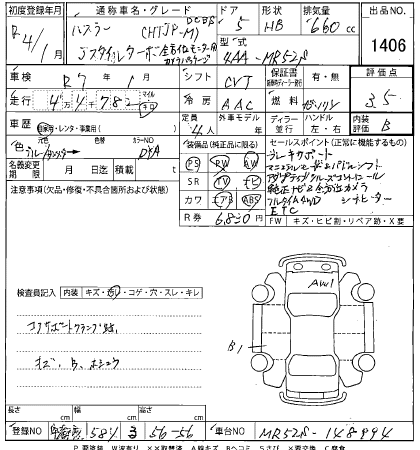 初度登録年月 通称車名・グレード ドア 形状 排気量 出品NO.
R4/1 ハスラー (HTJP-M) 5 HB 660cc 1406
Jスタイルターボ 全方位モニター用カメラパッケージ 型式 4AA-MR52S
車検 R7年1月 シフト CVT 保証書 有・無 評価点
走行 マイル km 冷房 AAC 燃料 ガソリン 3.5
車歴 自家用・レンタ・事業用( ) 定員 4人 外車モデル年 ディーラー 並行 ハンドル 左・右 内装評価 B
色 元色 色替 カラーNO
DHA
名義変更期限 月 日 積載 t
注意事項(欠品・修復・不具合箇所および状態)
装備品(純正品に限る)
PS PW AW
SR TV ナビ
カワ エアB ABS
R券 6,830円
セールスポイント(正常に機能するもの)
ブレーキサポート
アダプティブクルーズコントロール
純正ナビ 全方位カメラ
フルタイム4WD シートヒーター
ETC
FW キズ・ヒビ割・リペア跡・X要
検査員記入 内装 キズ・汚レ・コゲ・穴・スレ・キレ
キズ、B、ホシュウ
AW1
B1
長さ cm 幅 cm 高さ cm
登録NO 584 ヲ 56-56 車台NO MR52S-148994
P要塗装 W波有り XX取替済 A線キズ Bヘコミ Sさび X要交換 C腐食